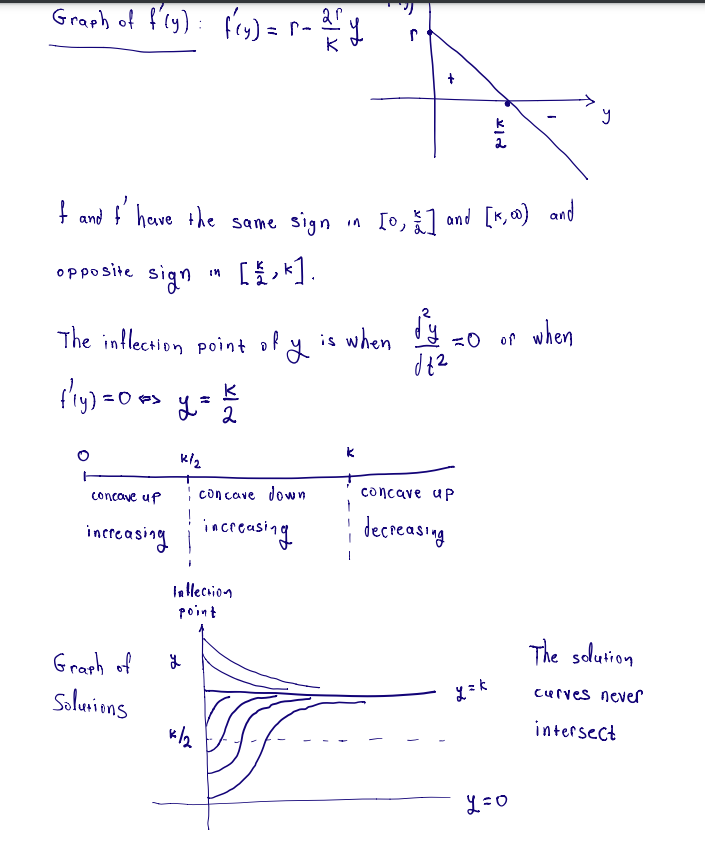 Graph of f'(y) : f'(y) = r - 2r/K y
r
+
-
K/2
y
f and f' have the same sign in [0, K/2] and [K, ∞) and
opposite sign in [K/2, K].
The inflection point of y is when d²y/dt² = 0 or when
f'(y) = 0 <=> y = K/2
0 K/2 K
concave up concave down concave up
increasing increasing decreasing
Inflection
point
Graph of
Solutions
y
K/2
y = K
y = 0
The solution
curves never
intersect